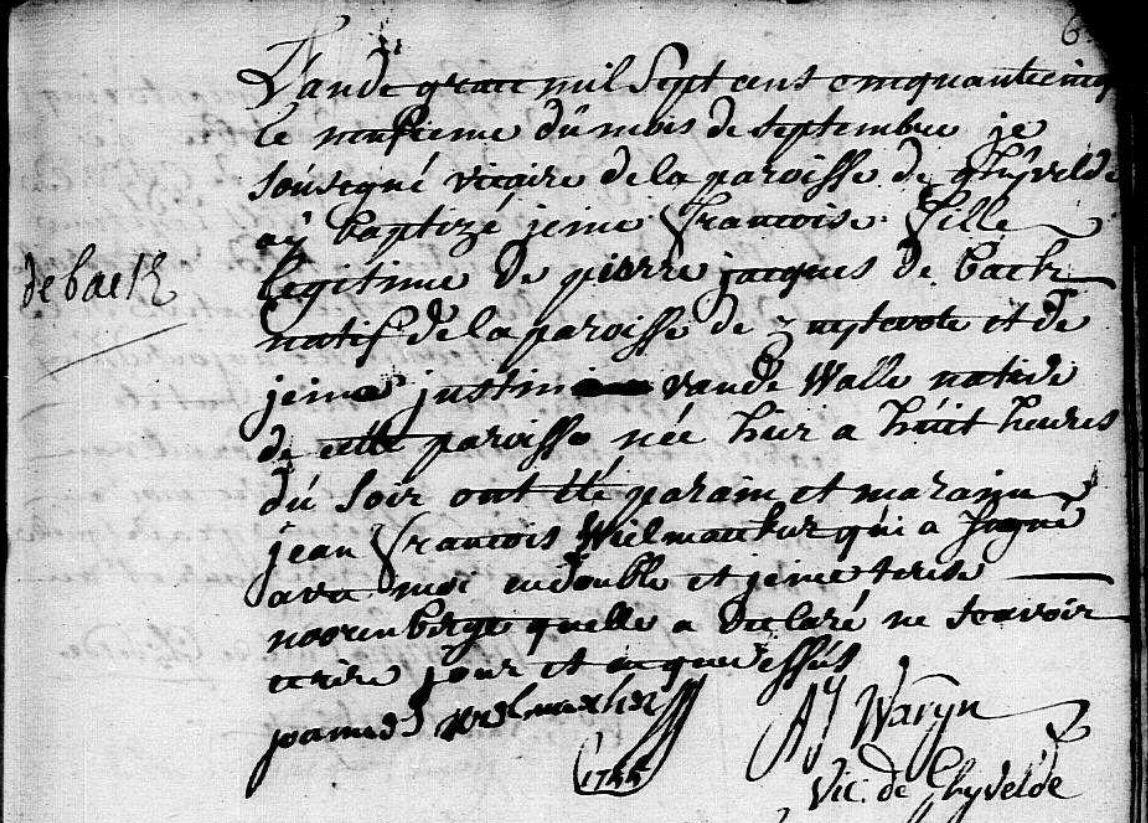 L'an de grace mil Sept cens cinquante cinq
le neufieme dü mois de septembre je
soúsegné vicaire de la paroisse de ghÿvelde
aÿ baptizé jeine francoise fille
legitime de pierre jacques de back
natif de la paroisse de zuytcote et de
jeine justine vande Walle native
de cette paroisse née hier a húit heures
dú soir ont été parain et maraine
jean francois Wielmacker qúi a signé
avec moi en double et jeine terese
noorenberge quelle a declaré ne scavoir
ecrire jour et an que dessús
de back
joannes wielmacker
AJ Warÿn
1755
Vic. de Ghyvelde